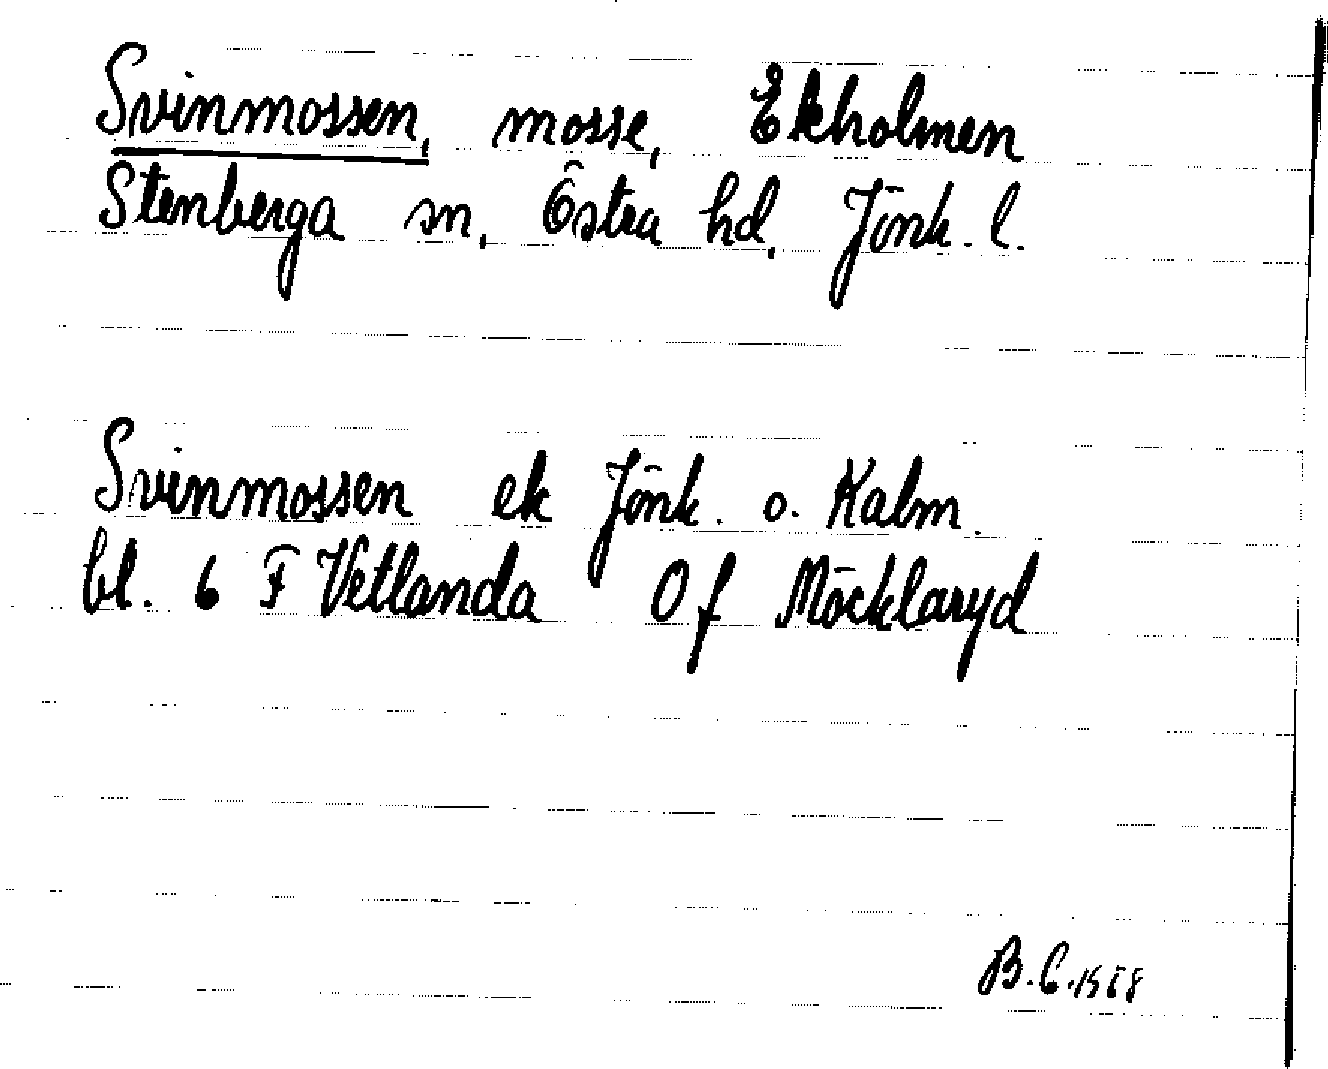 Svinmossen, mosse, Ekholmen
Stenberga sn, Östra hd, Jönk. l.
Svinmossen ek Jönk. o. Kalm.
bl. 6 F Vetlanda Of Möcklaryd
B.C.